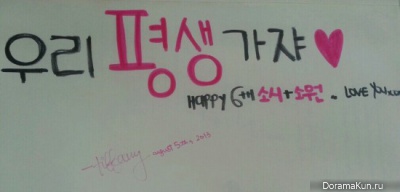 우리 평생 가쟈♥
HAPPY 6th 소시+소원. LOVE YOU
Tiffany August 5th, 2013
DoramaKun.ru